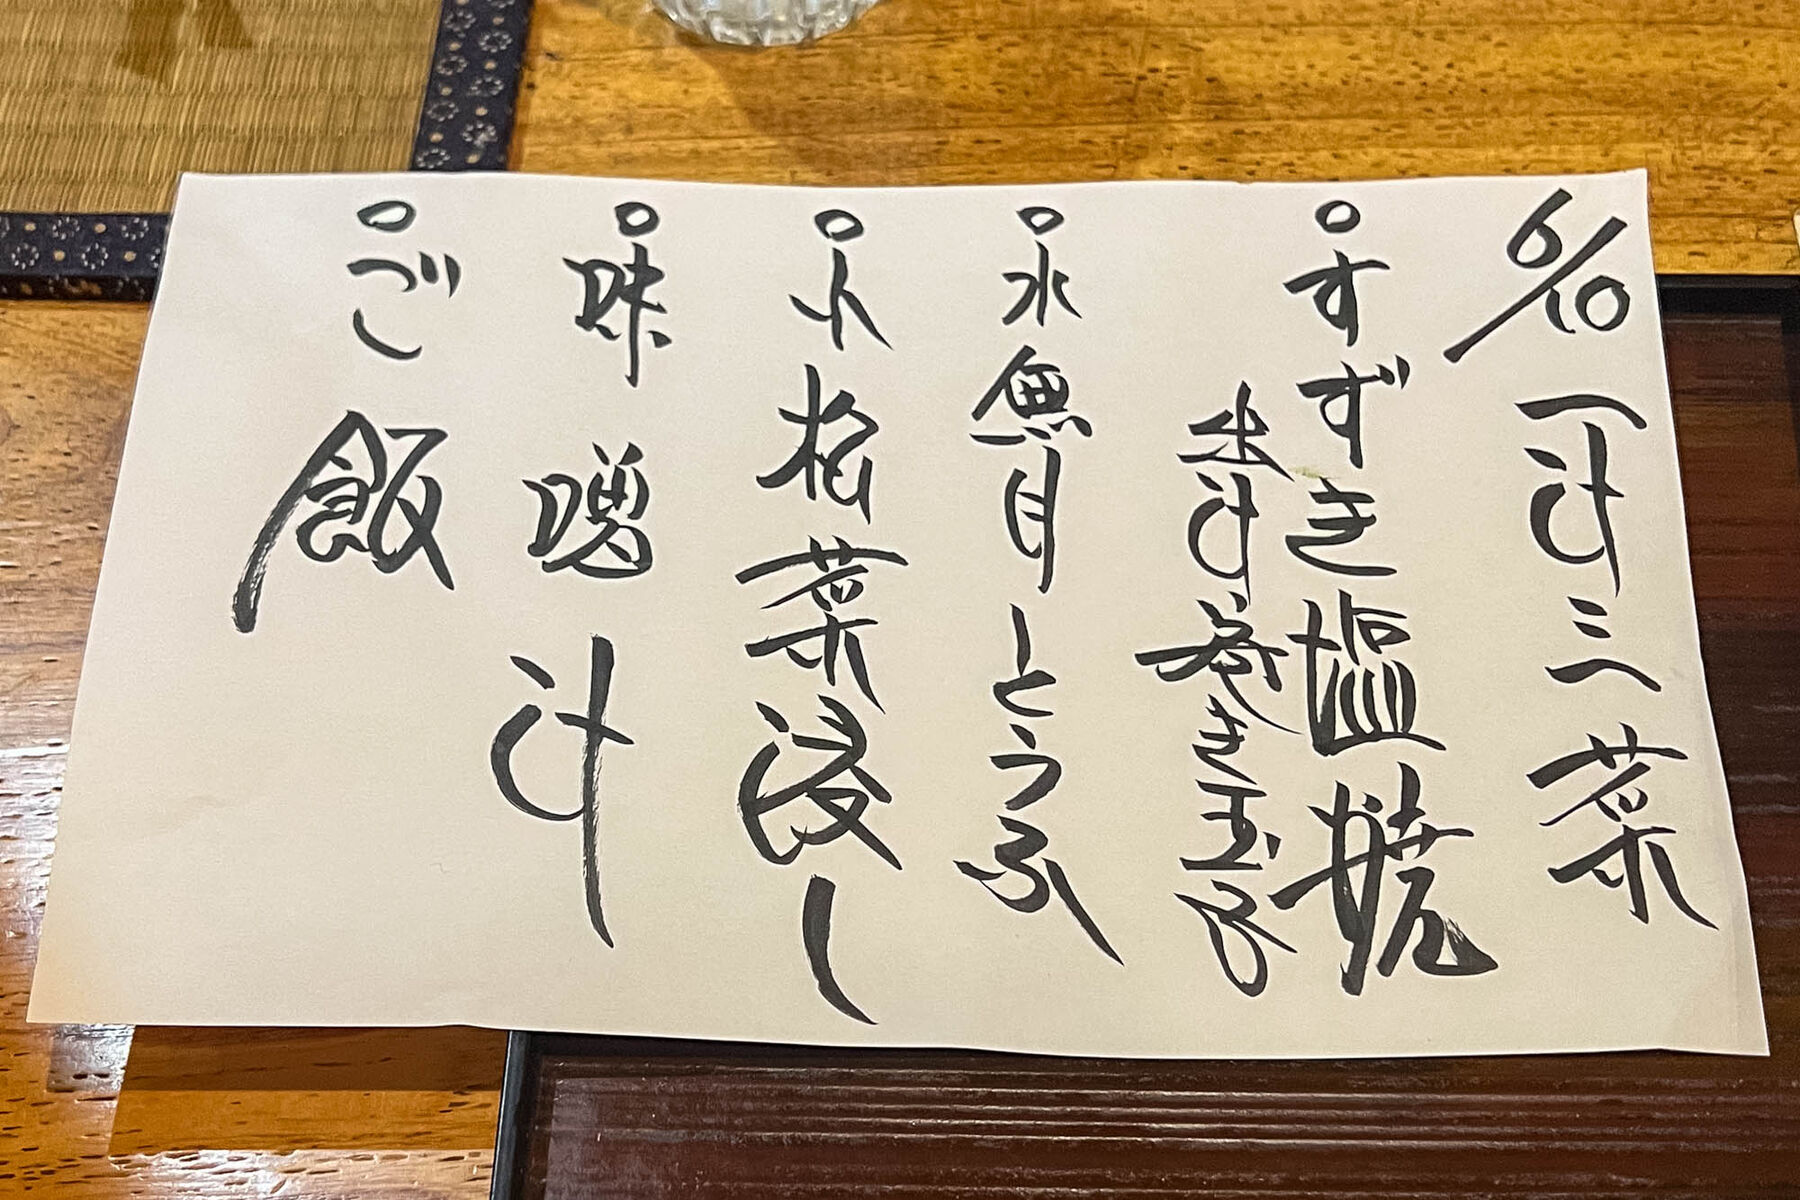 6/10 一汁三菜
○すずき塩焼
出汁巻き玉子
○水無月とうふ
○小松菜浸し
○味噌汁
○ご飯